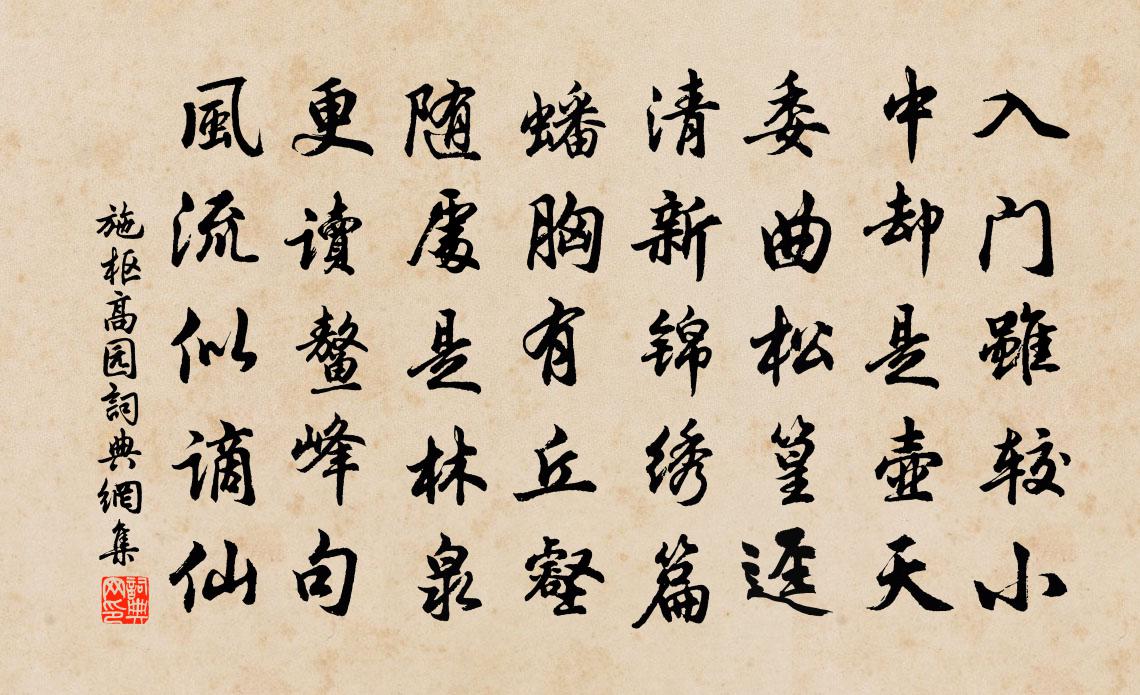 入门雖较小
中却是壷天
委曲松篁逕
清新锦绣篇
蟠胸有丘壑
随處是林泉
更讀鳌峰句
風流似谪仙
施枢高园詞典網集
詞典网印